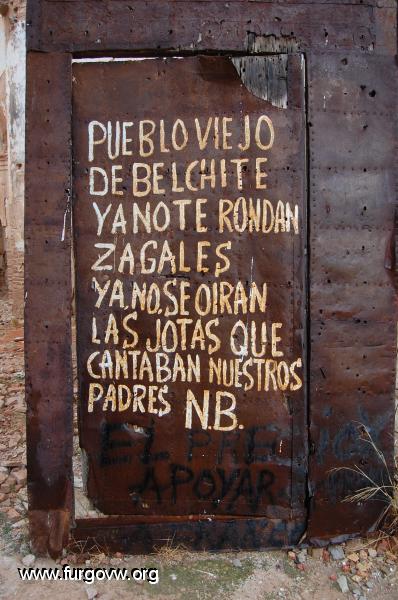 PUEBLO VIEJO
DE BELCHITE
YA NO TE RONDAN
ZAGALES
YA.NO.SE OIRAN
LAS JOTAS QUE
CANTABAN NUESTROS
PADRES N.B.
EL
APOYAR
www.furgovw.org